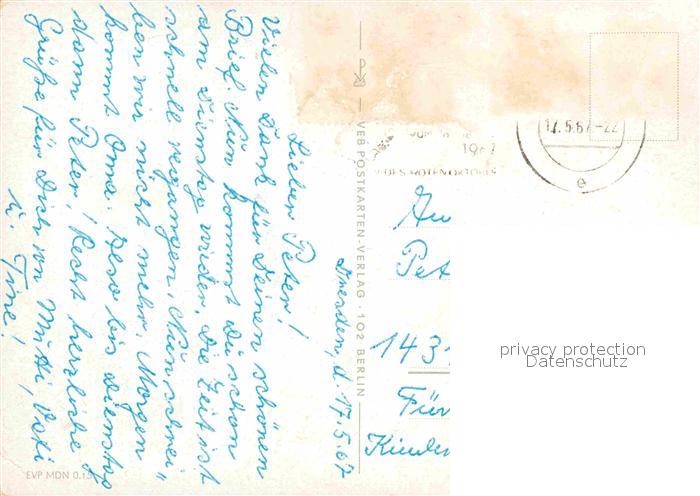 Dresden, d. 17.5.67
Lieber Peter!
Vielen Dank für Deinen schönen
Brief. Nun kommst Du schon
am Dienstag wieder. Die Zeit ist
schnell vergangen. Nun schrei„
ben wir nicht mehr. Morgen
kommt Oma. Also bis Dienstag
dann Peter! Recht herzliche
Grüße für Dich von Mutti, Vati
u. Tine!
VEB POSTKARTEN-VERLAG · 102 BERLIN
EVP MDN 0.15
17.5.67-22
DES ROTEN OKTOBER
e
An
Pet
143
Für
Kinder
privacy protection
Datenschutz